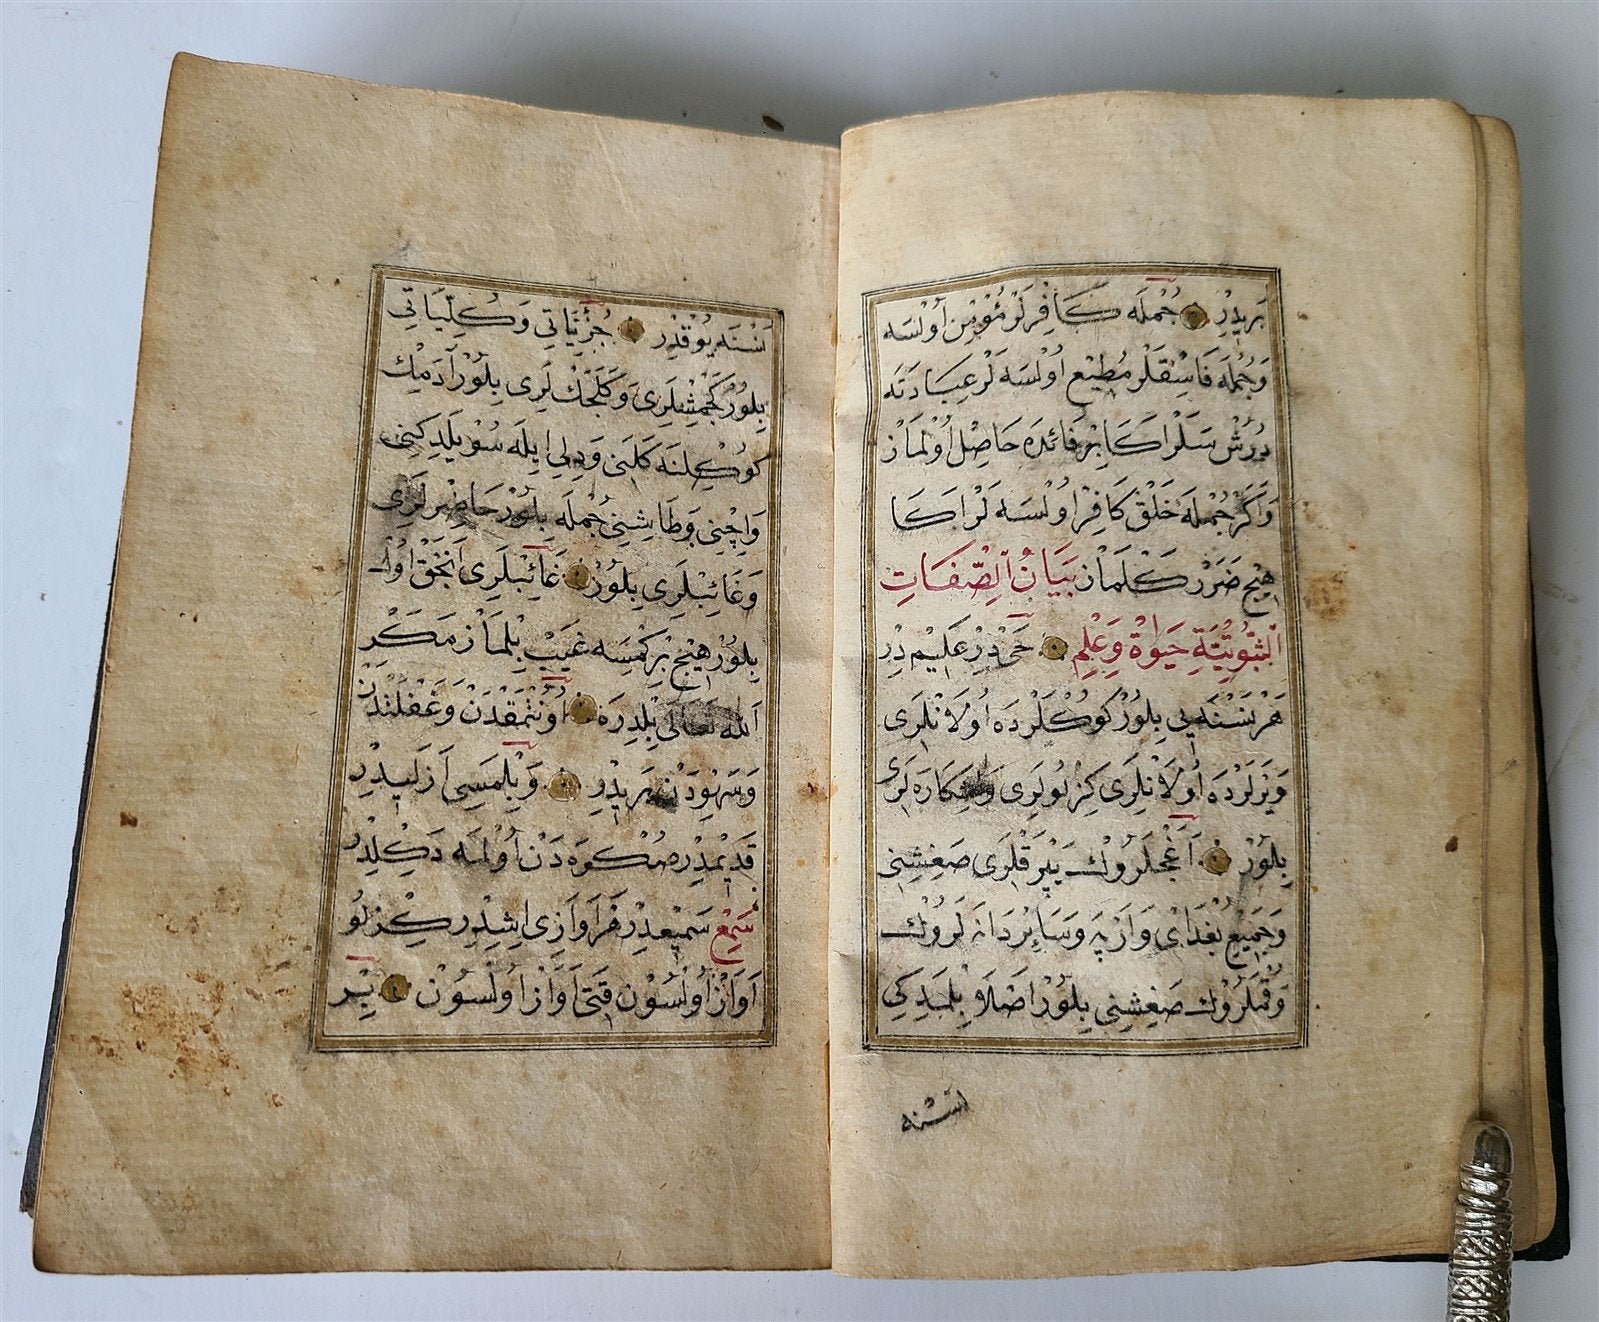 بَرِيدِرْ جُمْلَه كَافِرلَرْ مُؤْمِنْ اُولْسَه
وَجُمْلَه فَاسِقْلَرْ مُطِيعْ اُولْسَه لَرْ عِبَادَتَه
دُرُشْسَلَرْ اكَا بِرْ فَائِدَه حَاصِلْ اُولْمَازْ
وَاَكَرْ جُمْلَه خَلْقْ كَافِرْ اُولْسَه لَرْ اكَا
هِيچْ ضَرَرْ كَلْمَازْ بَيَانُ الصِّفَاتِ
الثُّبُوتِيَّةِ حَيٰوةْ وَعِلْمِ حَيْ دِرْ عَلِيمْ دِرْ
هَرْ نَسْنَه يِي بِلُورْ كُوكْلَرْدَه اُولَانْلَرِى
وَيَرْلَرْدَه اُولَانْلَرِى كِزْلُولَرِى وَاشِكَارَه لَرِى
بِلُورْ اَغَجْلَرُوكْ يَپْرَقْلَرِى صَغِشِنِى
وَجَمِيعْ بُغْدَاى وَارْپَه وَسَائِرْ دَانَه لَرُوكْ
وَقُمْلَرُوكْ صَغِشِنِى بِلُورْ اَصْلَا بِلْمَدِكِى
نسنه
نَسْنَه يُوقْدِرْ جُزْئِيَّاتِى وَكُلِّيَاتِى
بِلُورْ كَچْمِشْلَرِى وَكَلَجَكْ لَرِى بِلُورْ آدَمِكْ
كُوكْلِنَه كَلَنِى وَدِلِى اِيلَه سُويْلَدِكِنِى
وَاِچِنِى وَطَاشِنِى جُمْلَه بِلُورْ حَاضِرْلَرِى
وَغَائِبْلَرِى بِلُورْ غَائِبْلَرِى اَنْجَقْ اُولْ
بِلُورْ هِيچْ بِرْ كِمْسَه غَيْبْ بِلْمَازْ مَكَرْ
اَللّٰه تَعَالٰى بِلْدِرَه اُونُتْمَقْدَنْ وَغَفْلَتْدَنْ
وَسَهْودَنْ بَرِيدِرْ وَبِلْمَسِى اَزَلِيدِرْ
قَدِيمْدِرْ صُكْرَه دَنْ اُولْمَه دَكِلْدِرْ
سَمِعْ سَمِيعْدِرْ هَرْ اَوَازِى اِشِدِرْ كِزْلُو
اَوَازْ اُولْسُونْ قَتِى اَوَازْ اُولْسُونْ بِرْ